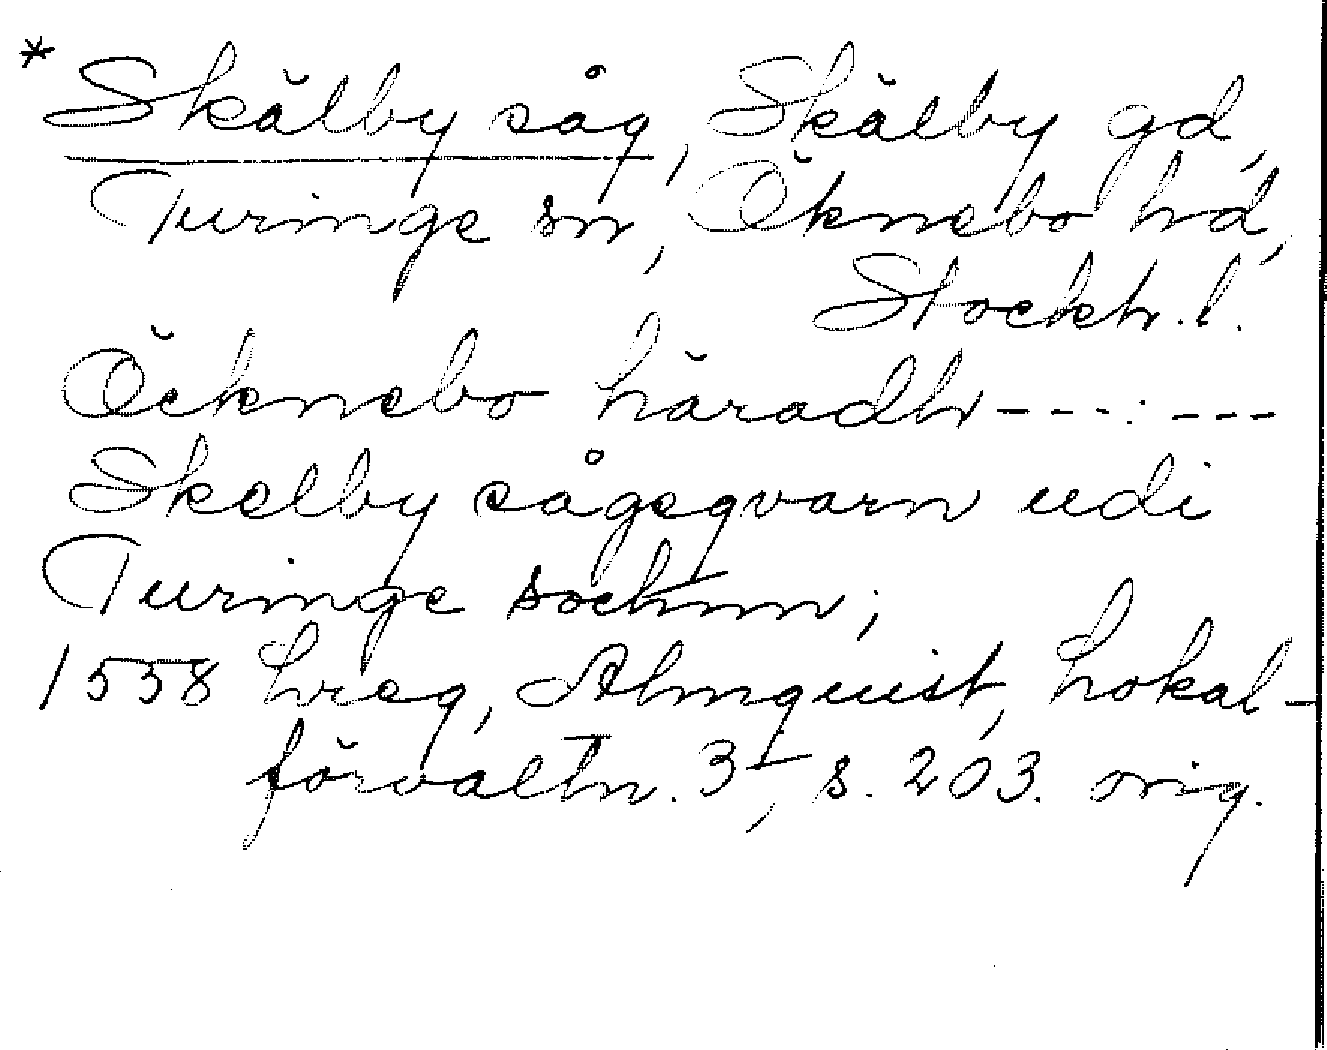 * Skälby såg, Skälby gd,
Turinge sn, Öknebo hd,
Stockh. l.
Öcknebo häradh--- ---
Skelby sågeqvarn udi
Turinge sochnn;
1558 hreg, Almquist, Lokal-
förvaltn. 3, s. 203. orig.